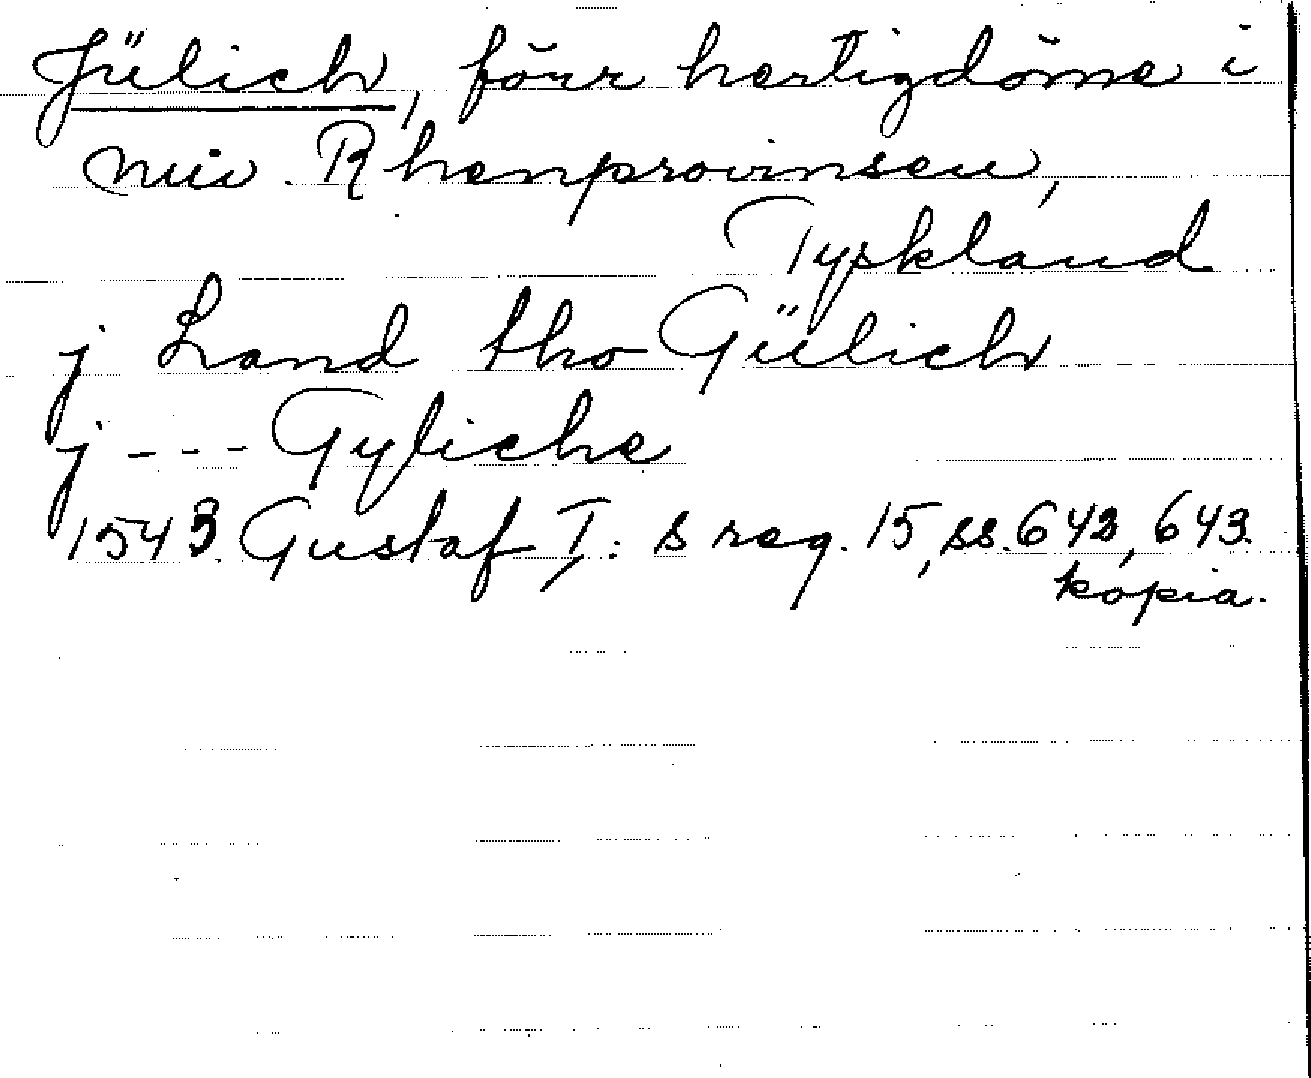 Jülich, förr hertigdöme i
nuv. Rhenprovinsen,
Tyskland
j Land tho Gülich
j - - - Gyliche
1543 Gustaf I: s reg. 15, ss. 642, 643.
kopia.